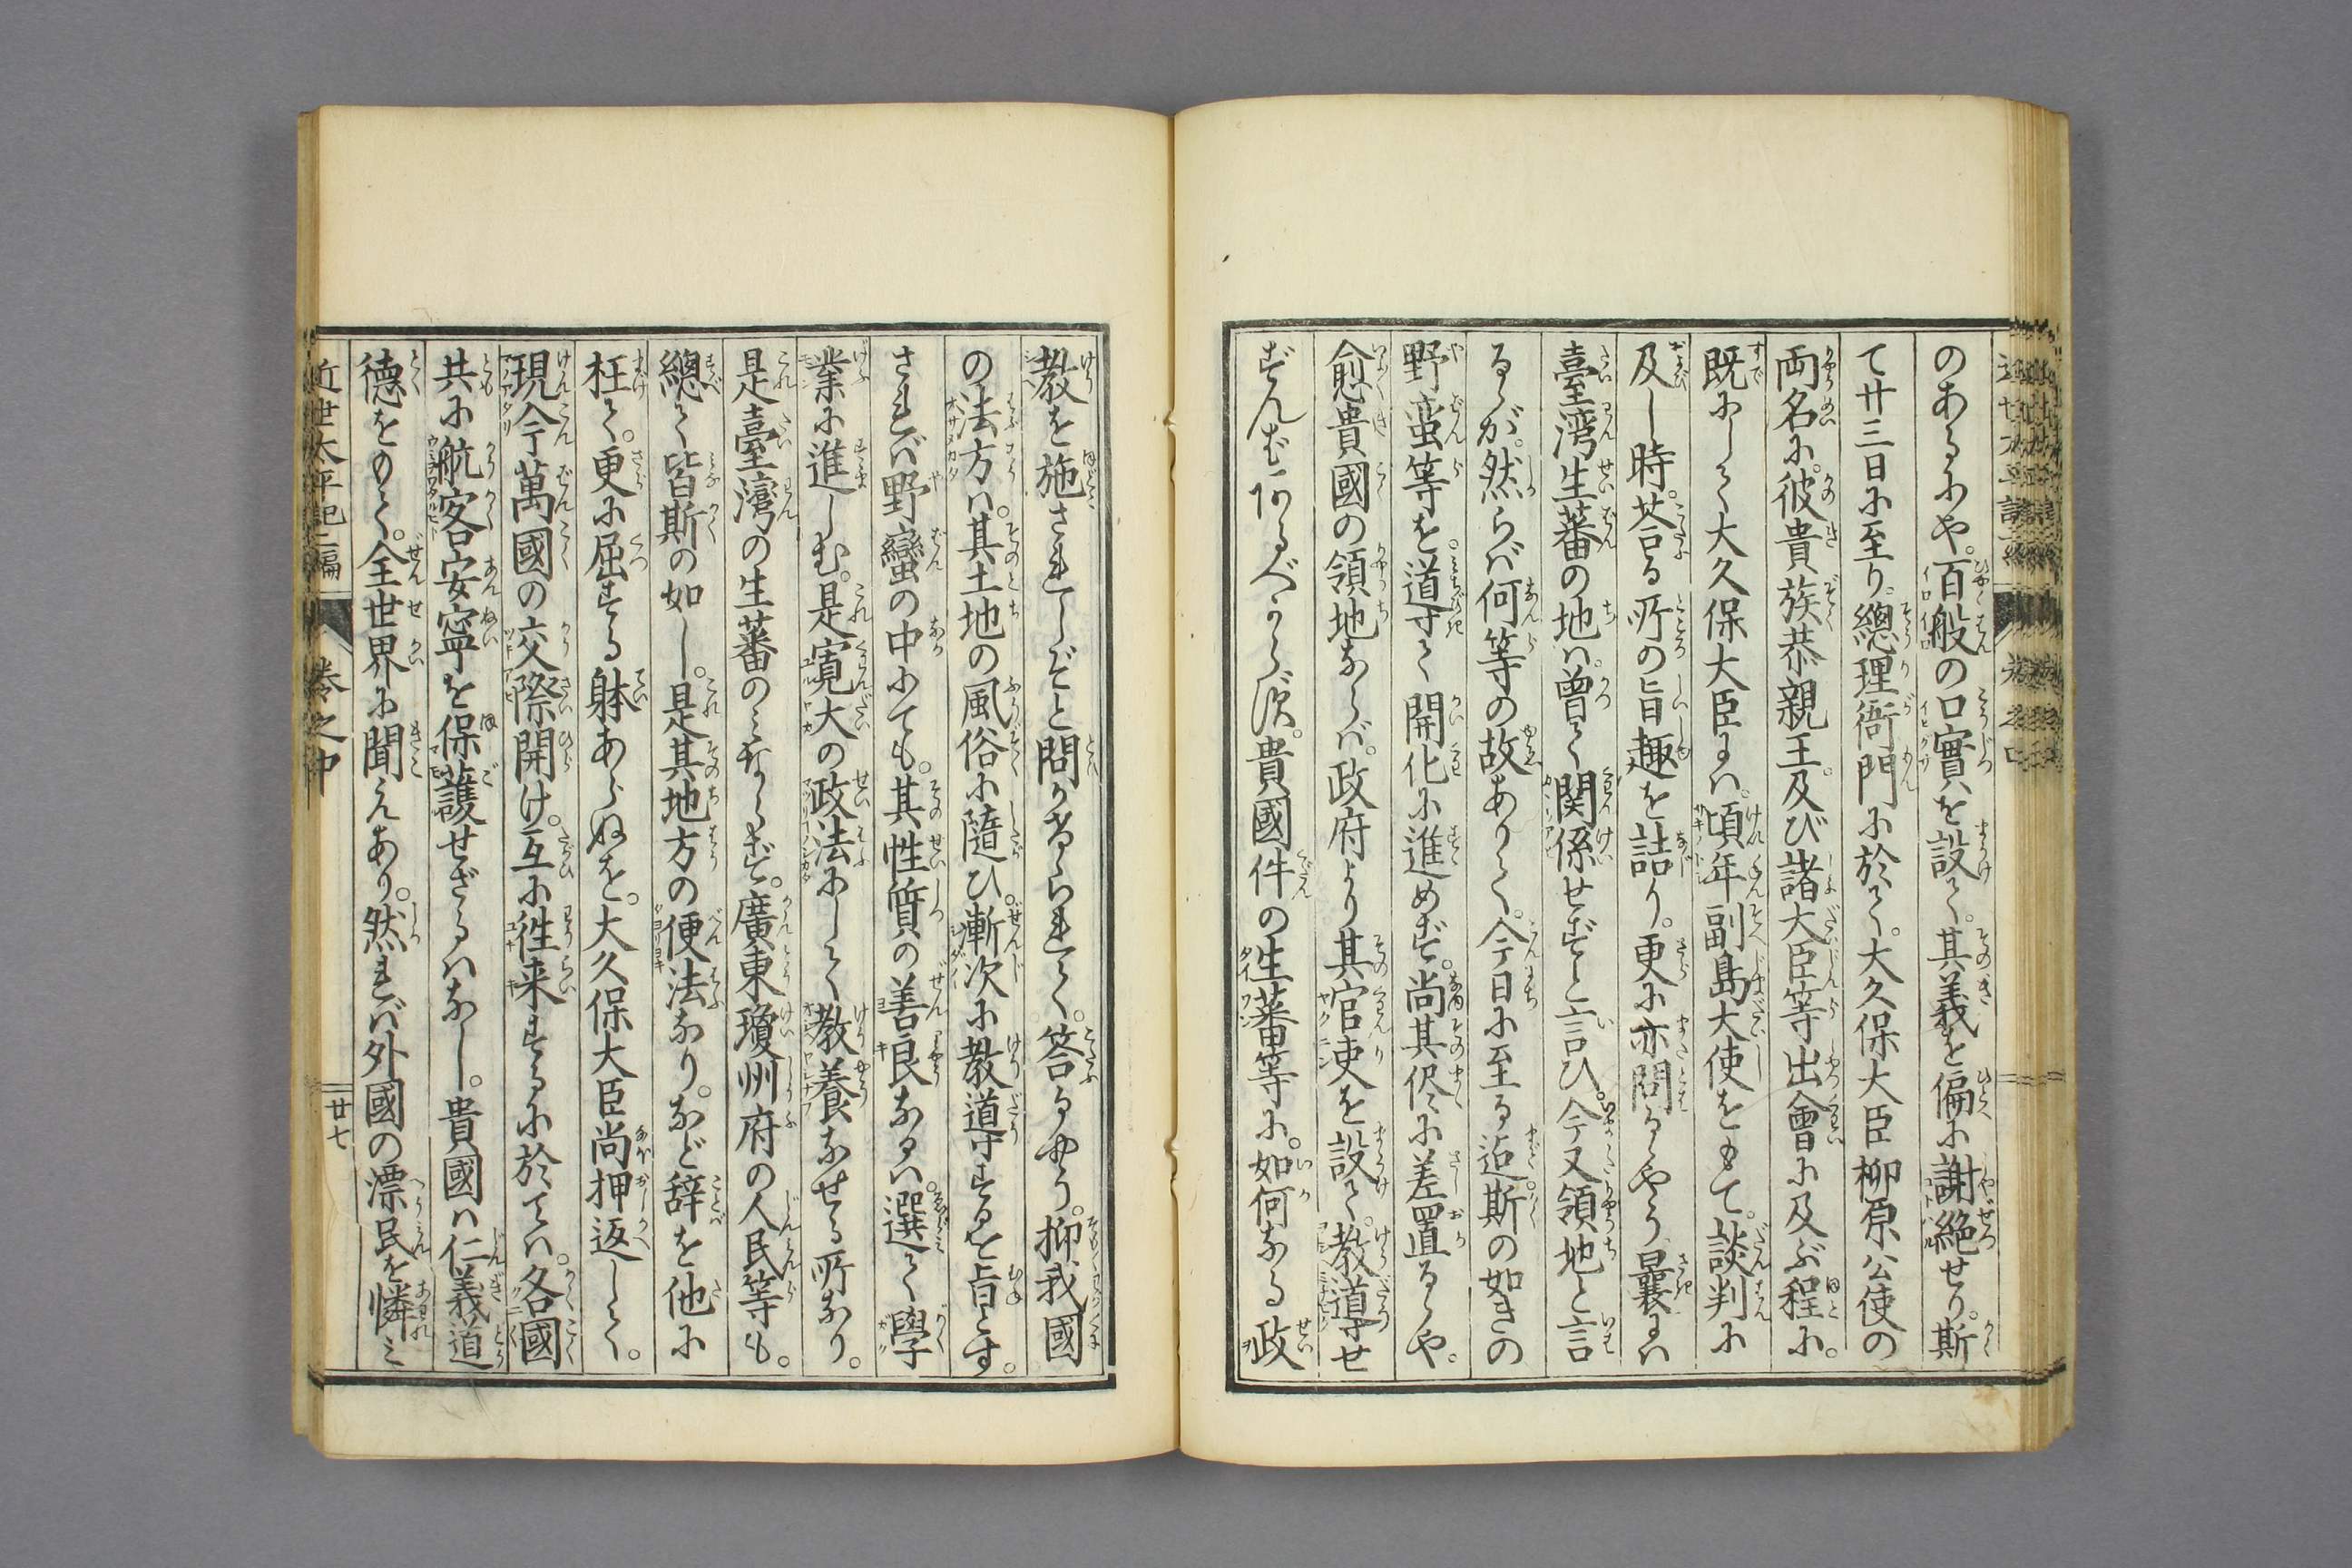 のあるにや。百般の口實を設て。其義を偏に謝絶せり。斯
て廿三日に至り。總理衙門に於て。大久保大臣柳原公使の
両名に。彼貴族恭親王及び諸大臣等出會に及ぶ程に。
既にして大久保大臣には。頃年副島大使をもて。談判に
及し時。荅る所の旨趣を詰り。更に亦問るやう曩には
臺湾生蕃の地は。曽て関係せずと言ひ。今又領地と言
るが。然らば何等の故ありて。今日に至る迠。斯の如きの
野蛮等を。道て開化に進めず。尚其侭に差置るや。
愈貴國の領地ならば。政府より其官吏を設て。教導せ
ずんばあるべからず。貴國件の生蕃等に。如何なる政
教を施されしぞと問かけられて。答るやう。抑我國
の法方は。其土地の風俗に隨ひ。漸次に教導するを旨とす。
されば野蠻の中にても。其性質の善良なるは。選て學
業に進しむ。是寛大の政法にして教養なせる所なり。
是臺灣の生蕃のみならず。廣東瓊州府の人民等も。
總て皆斯の如し。是其地方の便法なり。など辞を他に
枉て。更に屈する躰あらぬを。大久保大臣尚押返して。
現今萬國の交際開け。互に徃来するに於ては。各國
共に航客安寧を保護せざるはなし。貴國は仁義道
徳をもて。全世界に聞えあり。然れば外國の漂民を憐ミ
近世太平記二編
卷之中
廿七